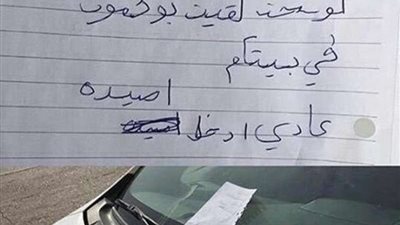 لو سمحت لقيت بوكمون
في بيتكم
اصيده
عادي ادخل